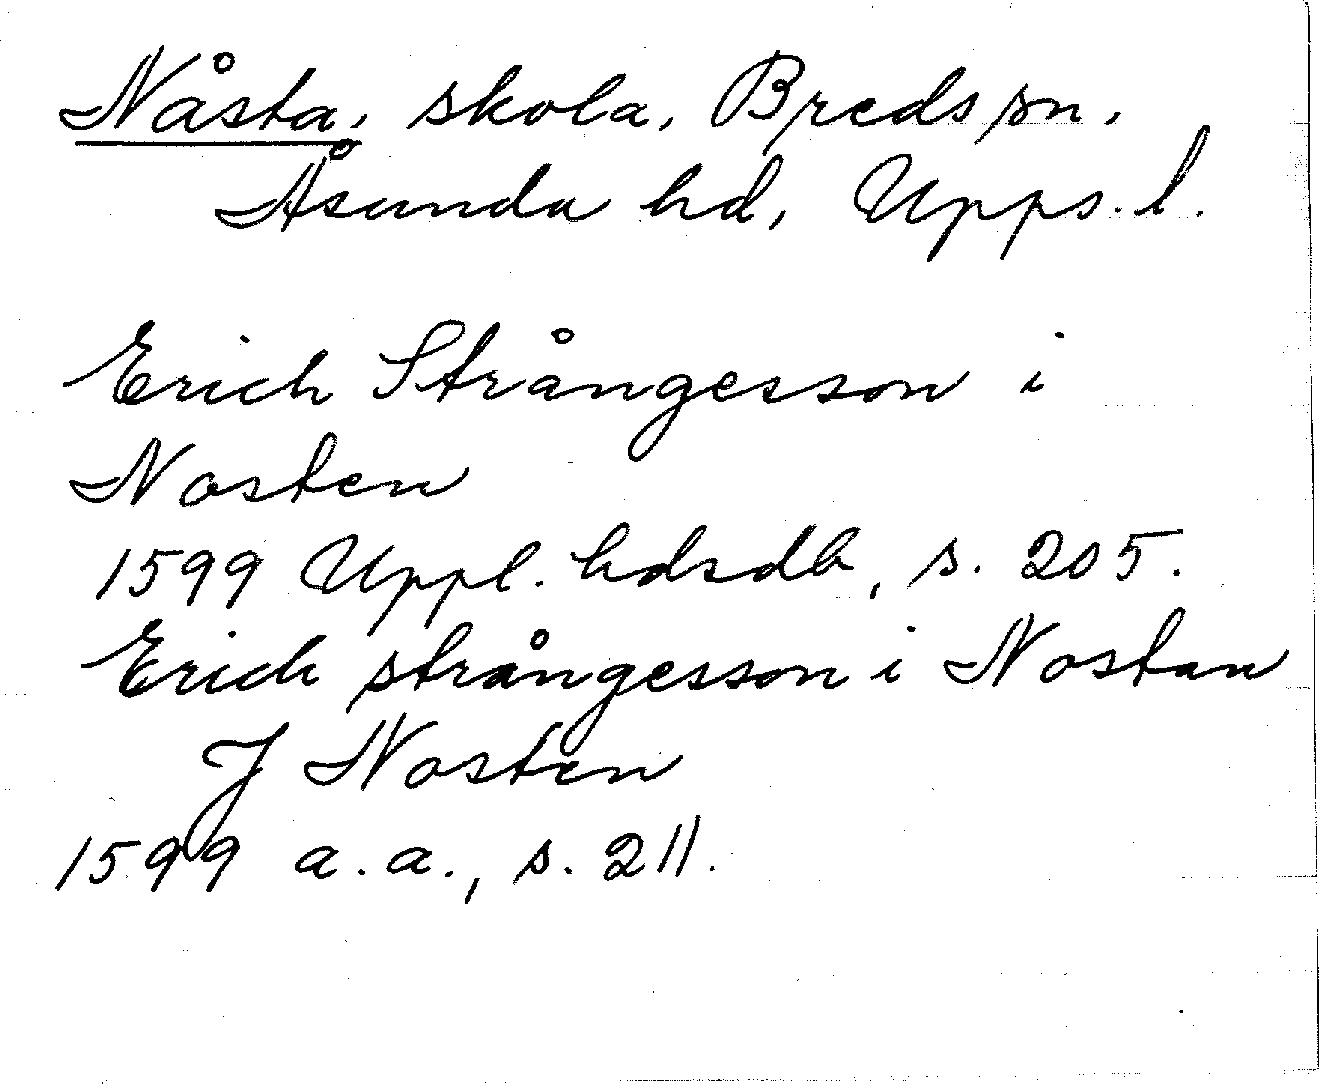 Nåsta, skola, Breds sn,
Åsunda hd, Upps. l.
Erich Strångesson i
Nosten
1599 Uppl. hdsdb, s. 205.
Erich strångesson i Nostan
J Nosten
1599 a.a., s. 211.